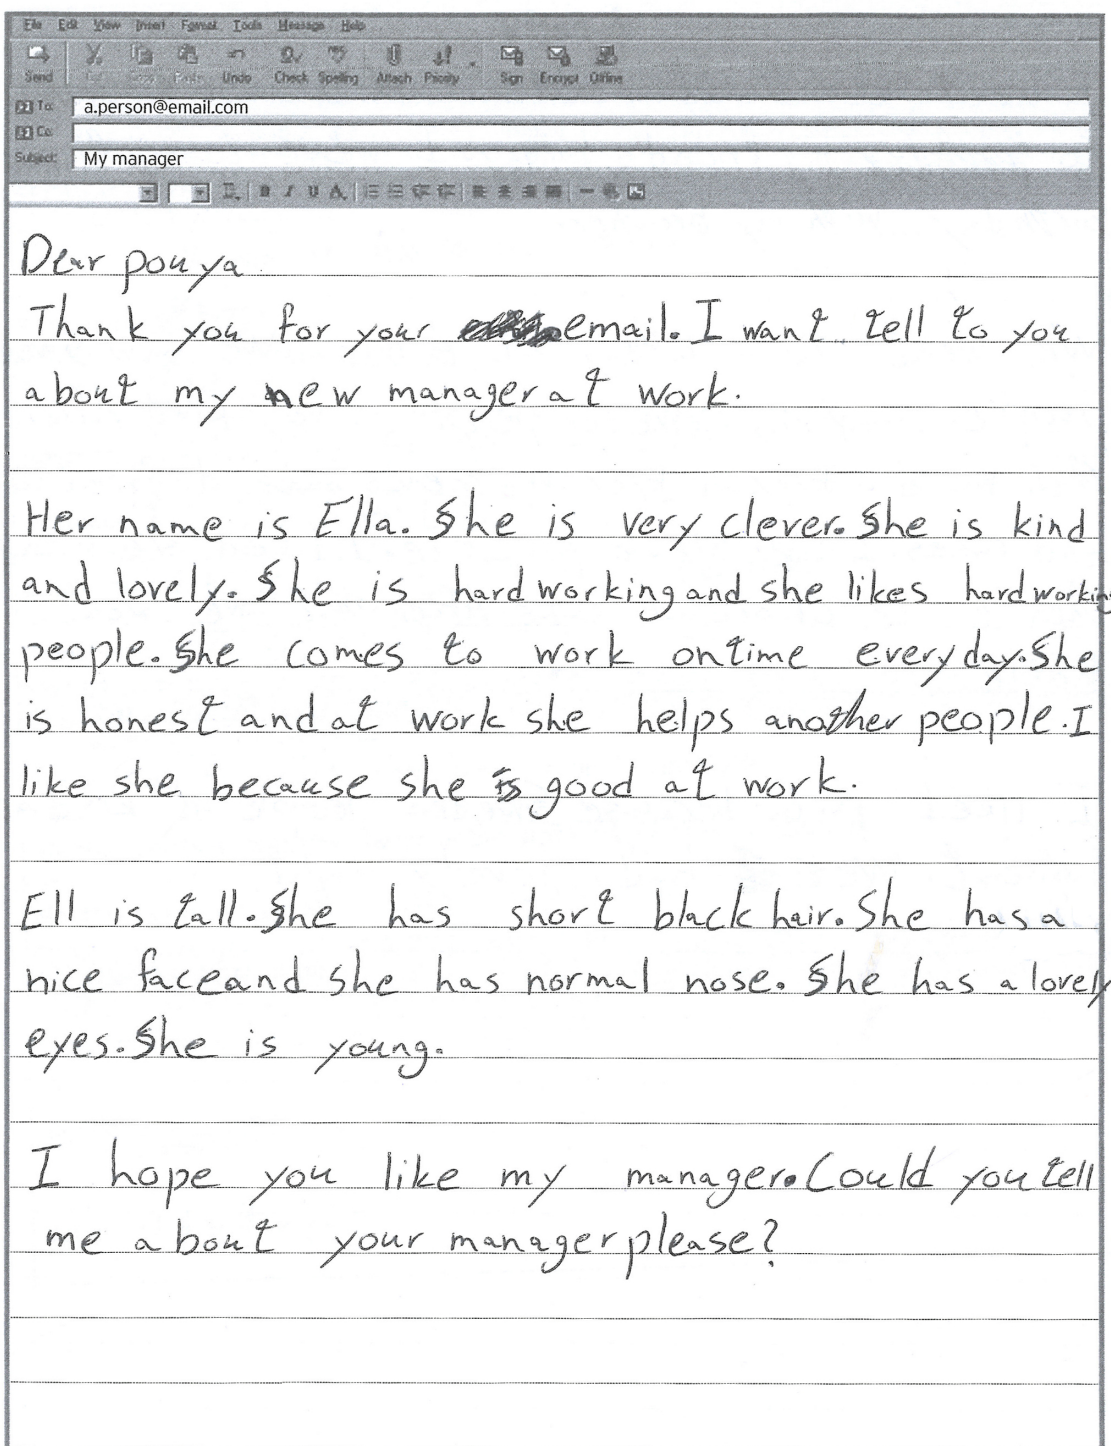 File Edit View Insert Format Tools Message Help
Send Cut Copy Paste Undo Check Spelling Attach Priority Sign Encrypt Offline
To: a.person@email.com
Cc:
Subject: My manager
B I U A
Dear pouya
Thank you for your email. I want tell to you
about my new manager at work.
Her name is Ella. She is very clever. She is kind
and lovely. She is hard working and she likes hard working
people. She comes to work ontime every day. She
is honest and at work she helps another people. I
like she because she is good at work.
Ell is tall. She has short black hair. She has a
nice face and she has normal nose. She has a lovely
eyes. She is young.
I hope you like my manager. Could you tell
me about your manager please?